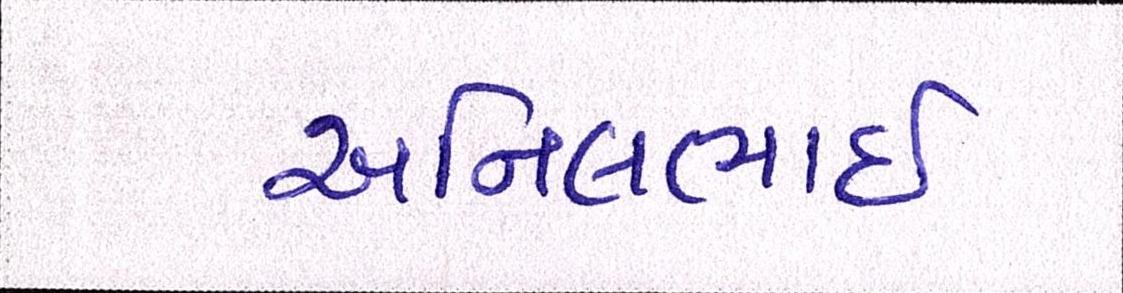 અનિલભાઈ